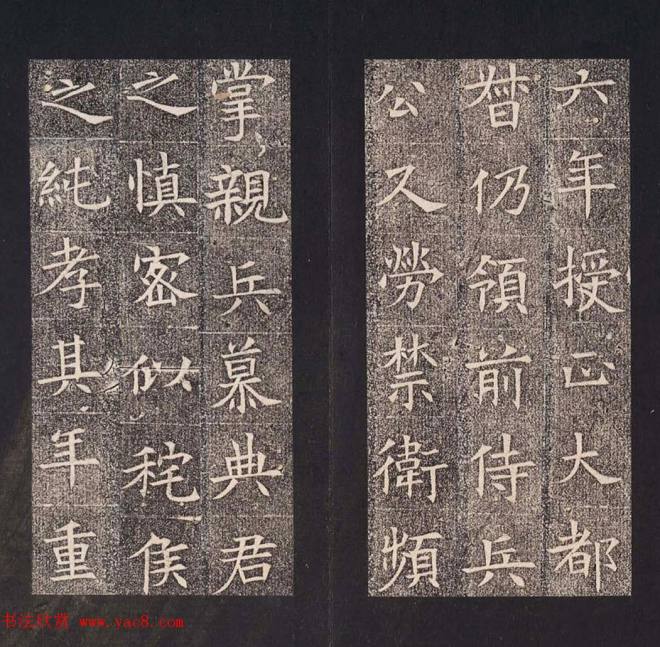 六年授正大都
督仍領前侍兵
公又勞禁衛頻
掌親兵慕典君
之慎密似秺侯
之純孝其年重
书法欣赏 www.yac8.com